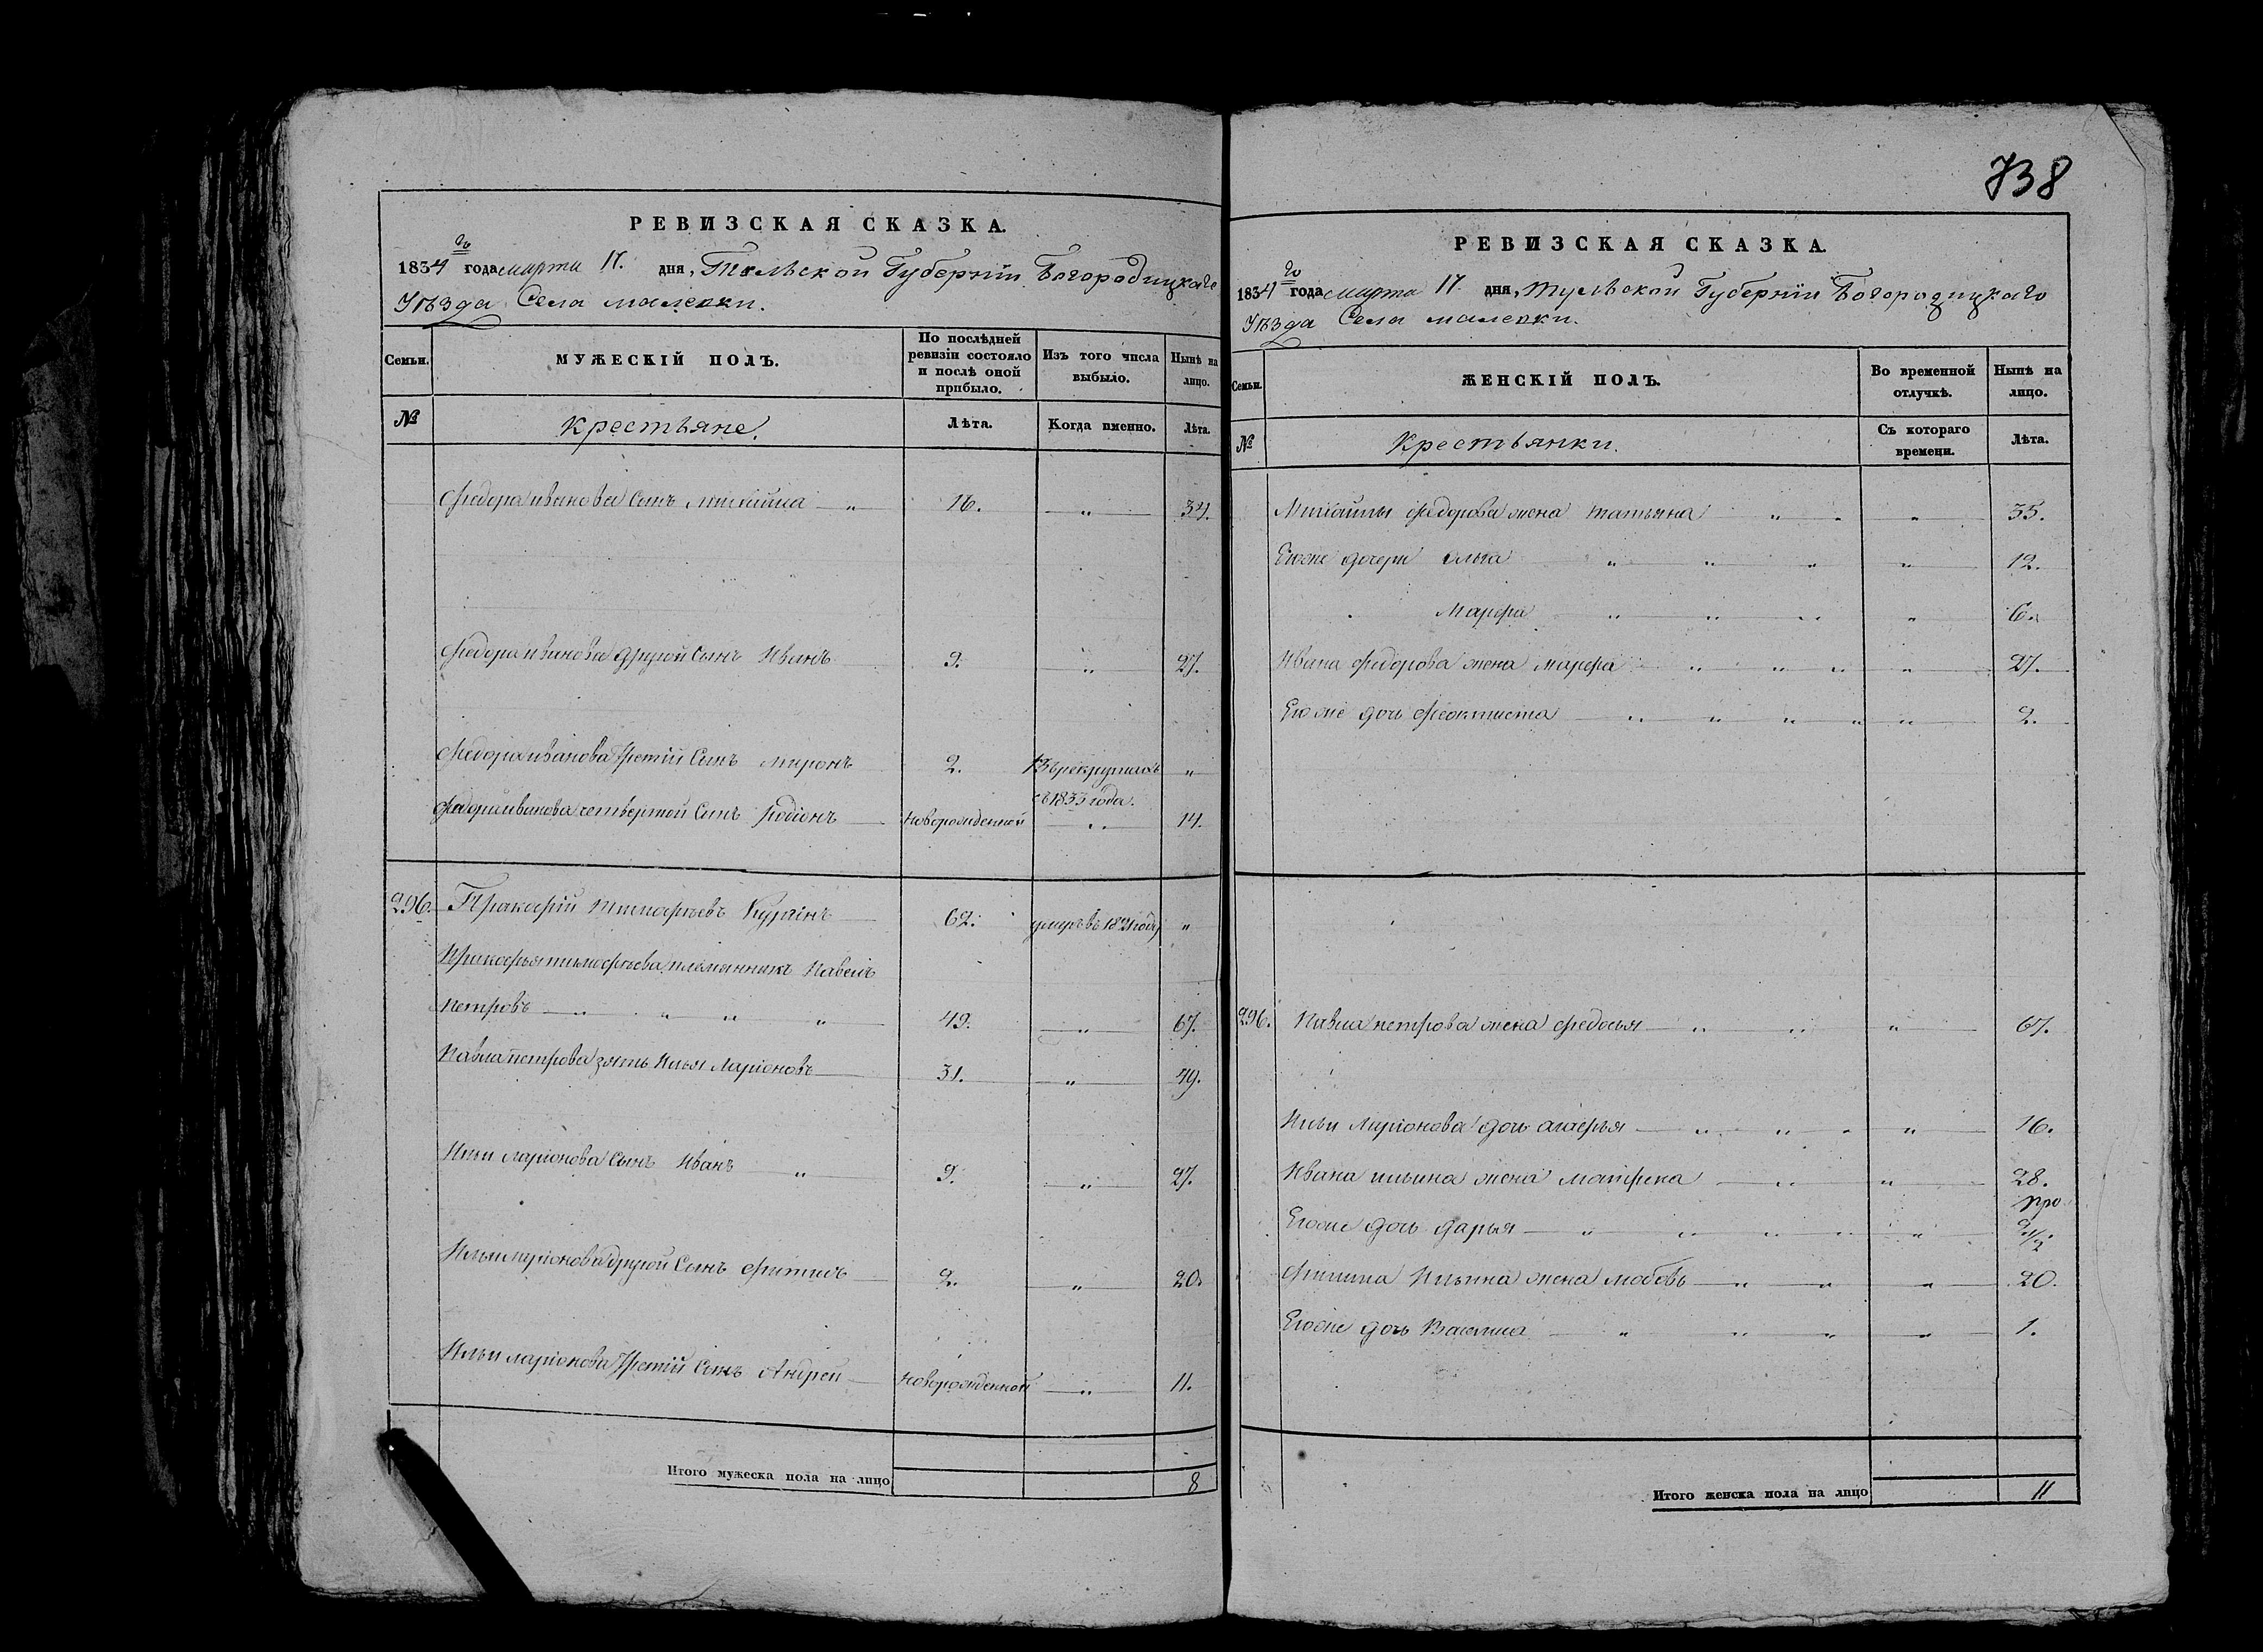 738
РЕВИЗСКАЯ СКАЗКА.
1834го года марта 17. дня, Тульской Губернïи Богородицкаго
Уѣзда Села малевки.
Семьи.
МУЖЕСКІЙ ПОЛЪ.
По послѣдней ревизіи состояло и послѣ оной прибыло.
Изъ того числа выбыло.
Нынѣ на лицо.
№
Крестьяне.
Лѣта.
Когда именно.
Лѣта.
Федора иванова Сынъ 16. „ 34.
Федора иванова другой Сынъ Иванъ 9. „ 27.
Федора иванова третïй Сынъ миронъ 2. Въ рекрутахъ „
съ 1833 года.
Федора иванова четвертой Сынъ Родïонъ новорожденной „ 14.
296. Пракофïй Тимофѣевъ 62. умръ въ 1821 году „
Пракофья тимофѣева племянникъ Павелъ
Петровъ „ „ „ „ 49. „ 67.
Павла петрова зять Илья Ларïоновъ 31. „ 49.
Ильи ларïонова Сынъ Иванъ „ 9. „ 27.
Ильи ларïонова другой Сынъ Филипъ 2. „ 20.
Ильи ларïонова третïй Сынъ Андрей новорожденной „ 11.
Итого мужеска пола на лицо 8
РЕВИЗСКАЯ СКАЗКА.
1834го года марта 17. дня, Тульской Губернïи Богородицкаго
Уѣзда Села малевки.
Семьи.
ЖЕНСКІЙ ПОЛЪ.
Во временной отлучкѣ.
Нынѣ на лицо.
№
Крестьянки.
Съ котораго времени.
Лѣта.
Федорова жена татьяна „ „ „ 35.
Егоже дочери олга „ „ „ „ 12.
Марфа „ „ „ „ 6.
Ивана Федорова жена марфа „ „ „ „ 27.
Егоже дочь феоктиста „ „ „ „ „ 2.
296. Павла петрова жена федосья „ „ „ 67.
Ильи Ларïонова дочь агафья „ „ „ „ 16.
Ивана ильина жена матрена „ „ 28.
Егоже дочь дарья „ „ „ „ „
Филипа Ильина жена любовь „ „ „ 20.
Егоже дочь Василиса „ „ „ „ 1.
Итого женска пола на лицо 11